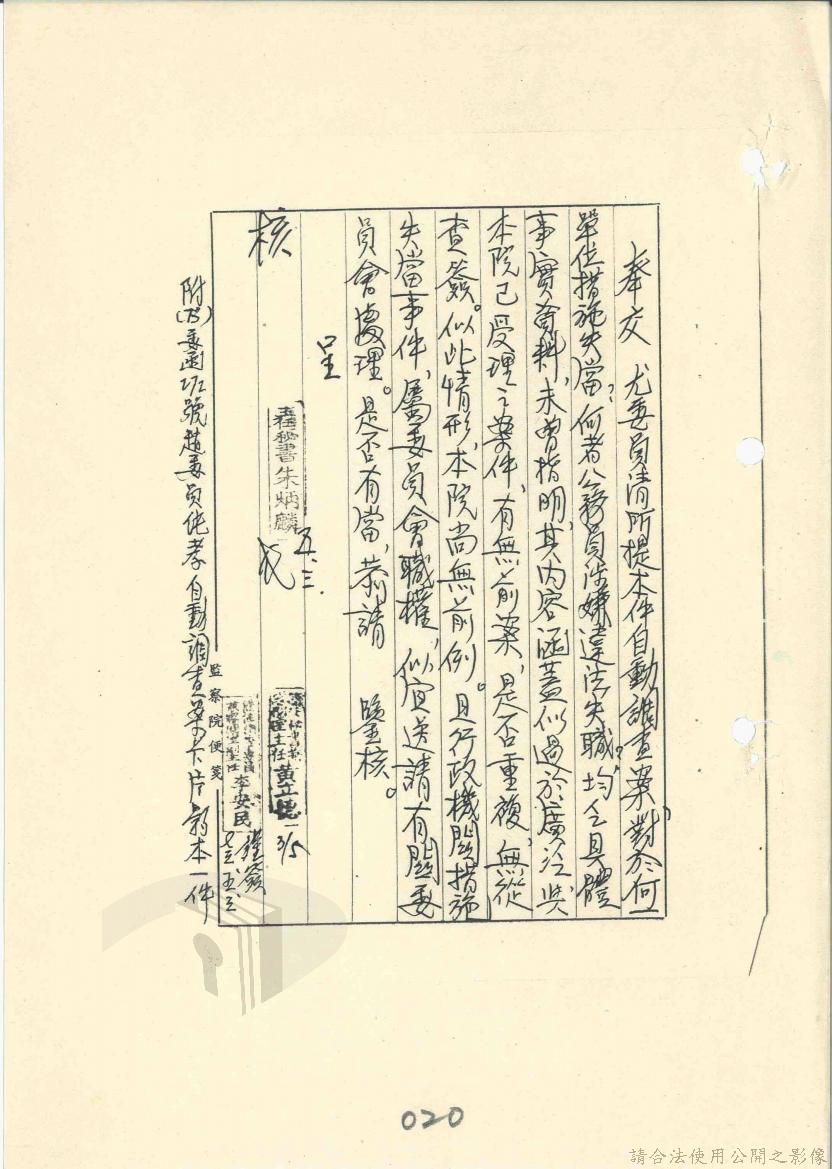 奉交 尤委員清所提本件自動調查案,對於何一
單位措施失當?何者公務員涉嫌違法失職?均乏具體
事實資料,未曾指明,其內容涵蓋似過於廣泛,與
本院已受理之案件,有無前案,是否重複,無從
查簽。似此情形,本院尚無前例。且行政機關措施
失當事件,屬委員會職權,似宜送請有關委
員會處理。是否有當,恭請 鑒核。
呈
核
秘書朱炳麟
五.三.
主任黃立
3/5
李安民
謹簽
監察院便箋
附(75)委函 號趙委員 孝自動調查案卡片影本一件
020
請合法使用公開之影像